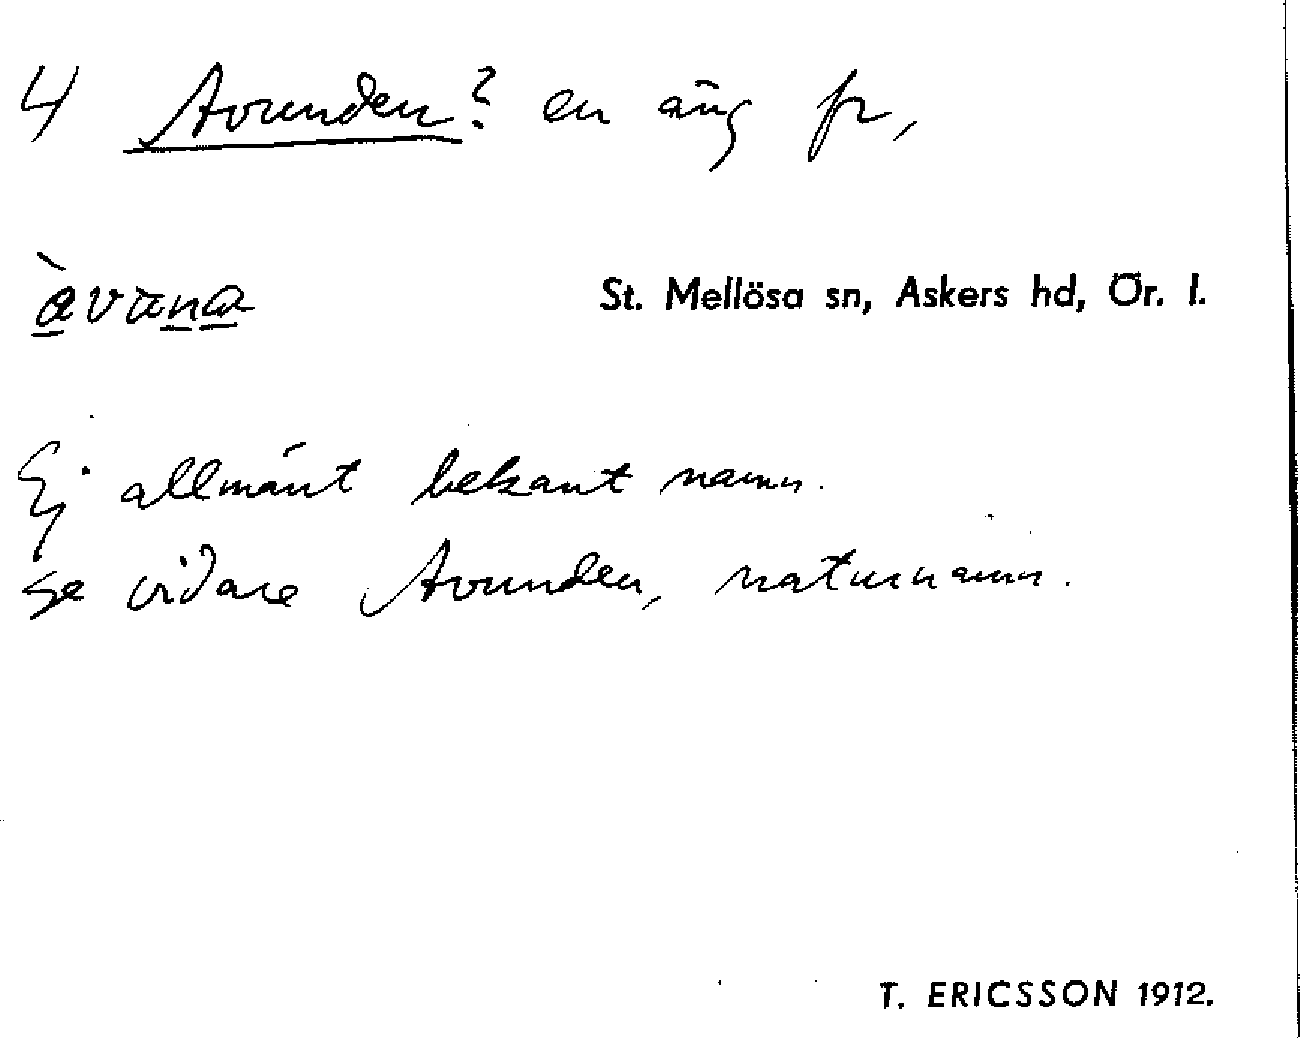 4 Avunden? en äng fr,
àvana
St. Mellösa sn, Askers hd, Ör. l.
Ej allmänt bekant namn.
se vidare Avunden, naturnamn.
T. ERICSSON 1912.